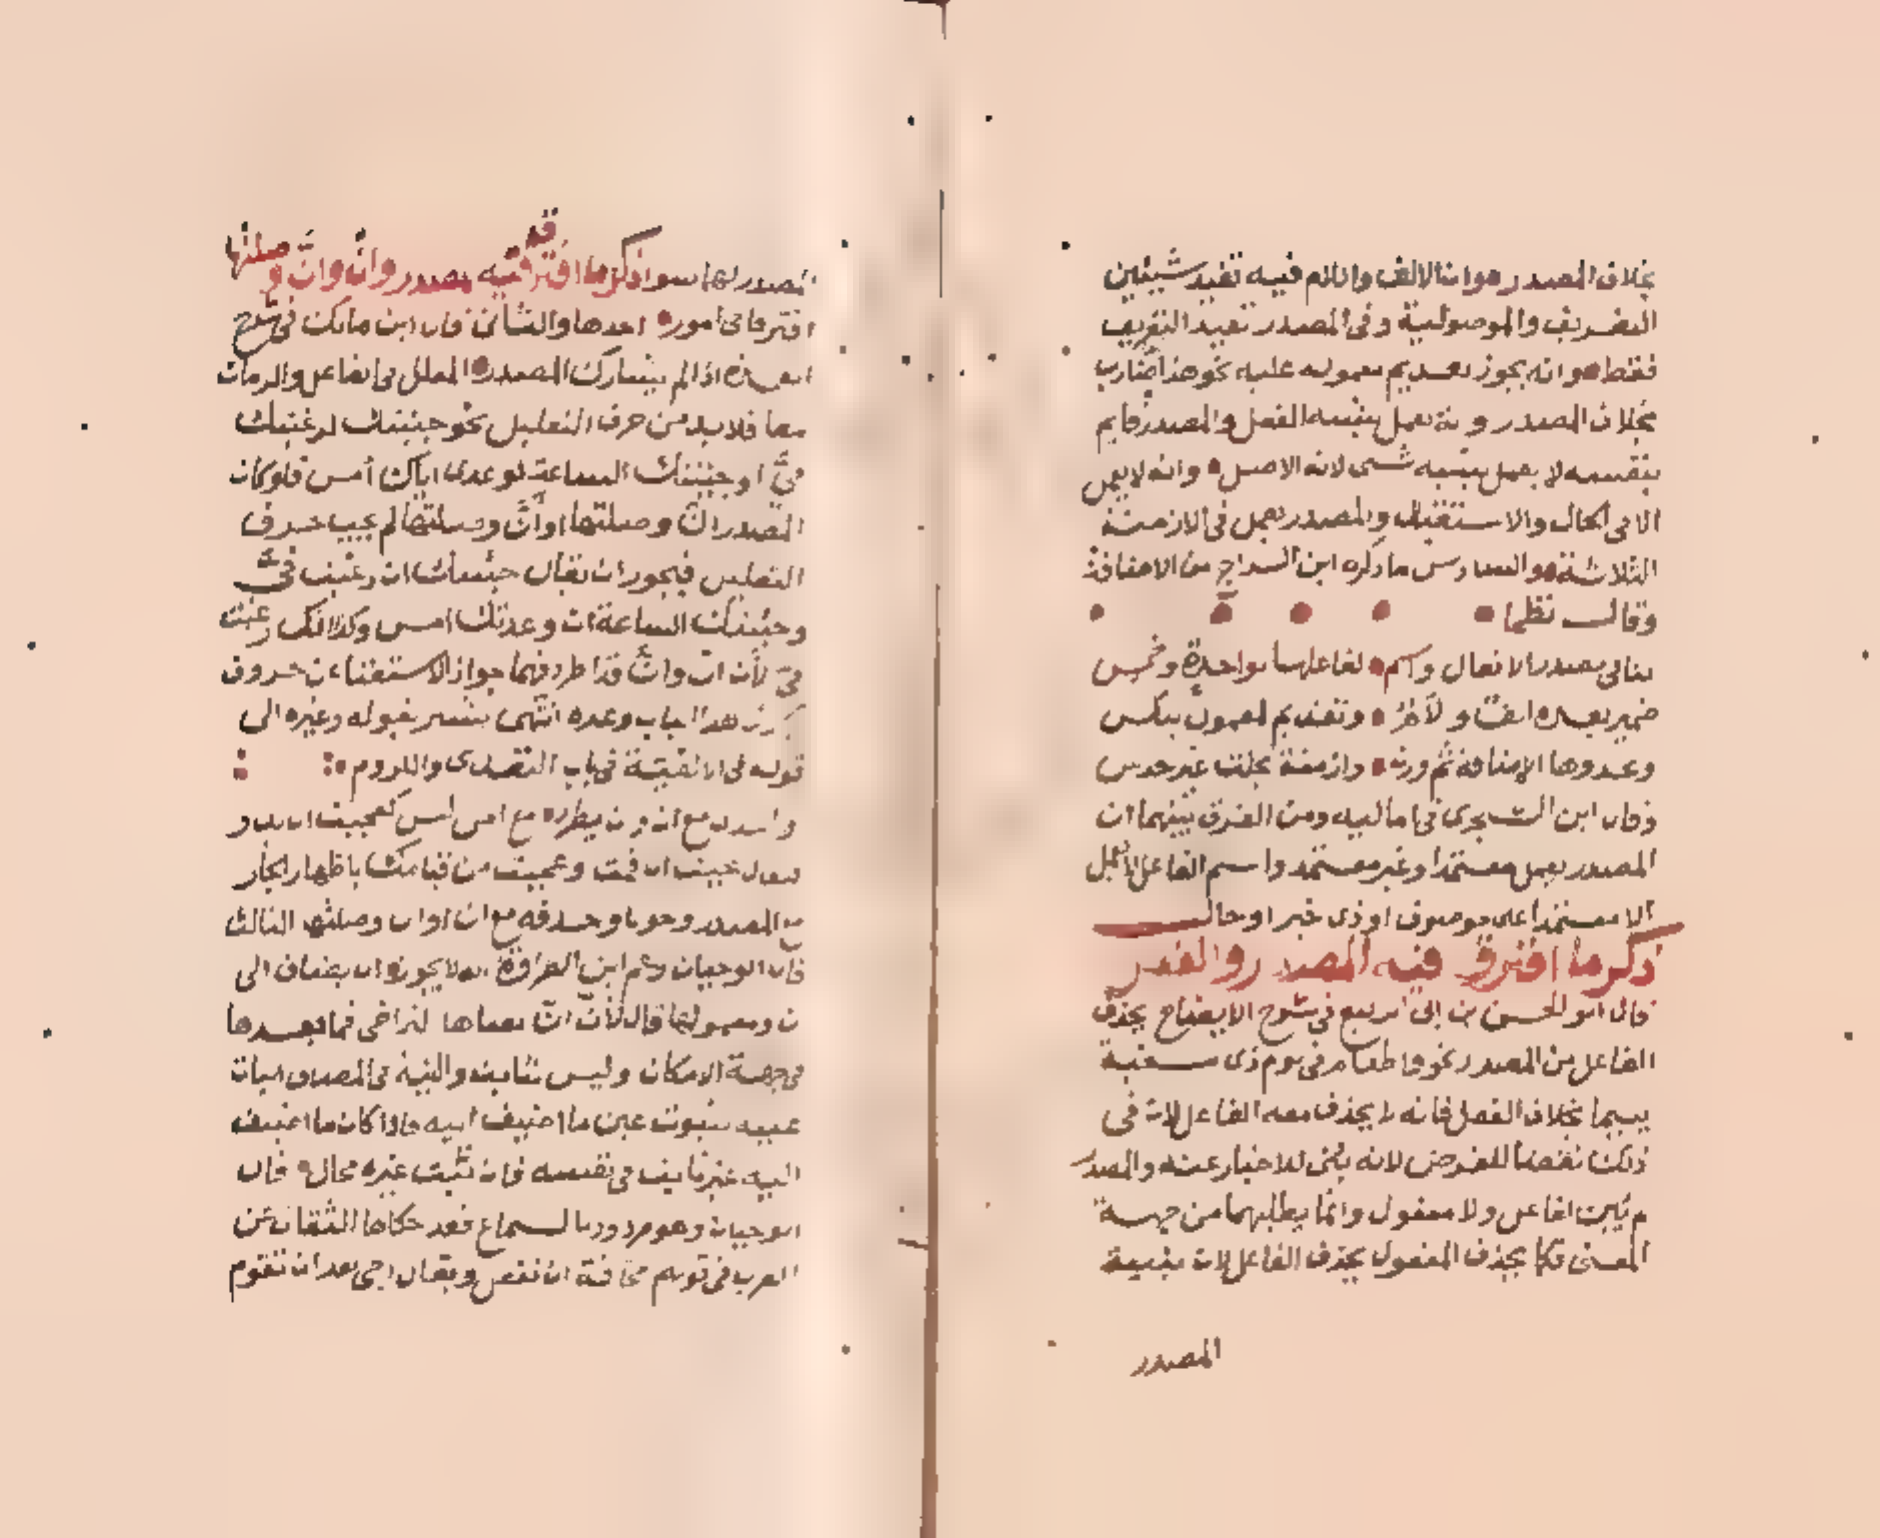 بخلاف المصدر هو ان الالف واللام فيه تفيد شيئين
التعريف والموصولية وفي المصدر تفيد التعريف
فقط هو انه يجوز تقديم معموله عليه نحو هذا ضارب
بخلاف المصدر و انه يعمل بشبه الفعل والمصدر قايم
بنفسه لا يعمل بشبه شى لانه الاصل وانه لا يعمل
الا فى الحال والاستقبال والمصدر يعمل فى الازمنة
الثلاثة والسادس ما ذكره ابن السراج من الاضافة
وقال نظما
الافعال لفاعلها بواحدة وخمس
ضمير بعده الف ولام وتقديم لمعمول بعكس
وعدوها الاضافة ثم وازمنة بحلت غير حدس
وقال ابن الشجرى فى اماليه ومن الفرق بينهما ان
المصدر يعمل معتمدا وغير معتمد واسم الفاعل لا يعمل
الا معتمدا على موصوف او ذى خبر او حال
ذكر ما افترق فيه المصدر والفعل
قال ابو الحسن بن ابى الربيع فى شرح الايضاح يحذف
الفاعل من المصدر نحو او اطعام فى يوم ذى مسغبة
يتيما بخلاف الفعل فانه لا يحذف معه الفاعل لان فى
ذلك نقضا للغرض لانه بنى للاخبار عنه والمصدر
لم يبن لفاعل ولا مفعول وانما يطلبهما من جهة
المعنى فكما يحذف المفعول يحذف الفاعل لان بنية
المصدر
المصدر لهما سوا ذكر ما افترق فيه المصدر وان وان وصلتها
افترقا فى امور احدها والثانى قال ابن مالك فى شرح
العمدة اذا لم يشارك المصدر المعلل فى الفاعل والزمان
معا فلا بد من حرف التعليل نحو جئتك لرغبتك
فىّ او جئتك الساعة لوعدى اياك امس فلو كان
المصدر ان وصلتها او ان وصلتها لم يجب حرف
التعليل فيجوز ان تقال جئتك ان رغبت فىّ
وجئتك الساعة ان وعدتك امس وكذلك رغبت
فىّ لان ان وان قد اطرد فيهما جواز الاستغناء عن حروف
الجر فى هذا الباب وغيره انتهى يشير بقوله وغيره الى
قوله فى الالفية فى باب التعدى واللزوم
وان يطرد مع امن لبس كعجبت ان يدوا
فيقال عجبت ان قمت وعجبت من قيامك باظهار الجار
مع المصدر وجوبا وحذفه مع ان او ان وصلتها الثالث
قال ابو حيان زعم ابن الطراوة انه لا يجوز ان يضاف الى
ان ومعمولها قال لان ان معناها التراخى فما بعدها
فى جهة الامكان وليس بثابت والنية فى المضاف اثبات
عينه بثبوت عين ما اضيف اليه فاذا كان ما اضيف
اليه غير ثابت فى نفسه فان تثبت غيره محال قال
ابو حيان وهو مردود بالسماع فقد حكاها الثقات عن
العرب فى قولهم مخافة ان تفعل ويقال اجى بعد ان تقوم